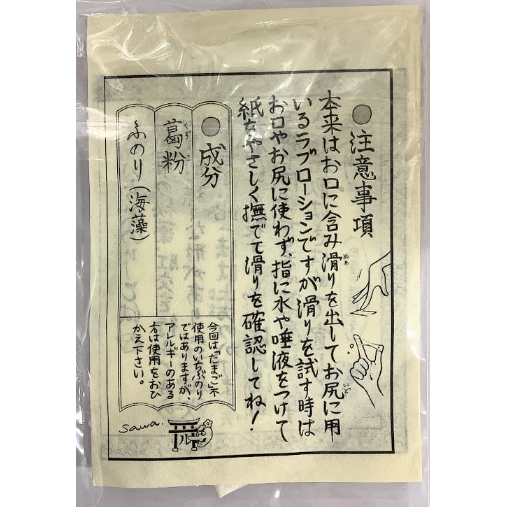 ●注意事項
本来はお口に含み滑りを出してお尻に用
いるラブローションですが滑りを試す時は
お口やお尻に使わず、指に水や唾液をつけて
紙をやさしく撫でて滑りを確認してね!
●成分
葛粉
ふのり(海藻)
今回は「たまご」不
使用のいちぶのり
ではありますが、
アレルギーのある
方は使用をおひ
かえ下さい。
sawa.